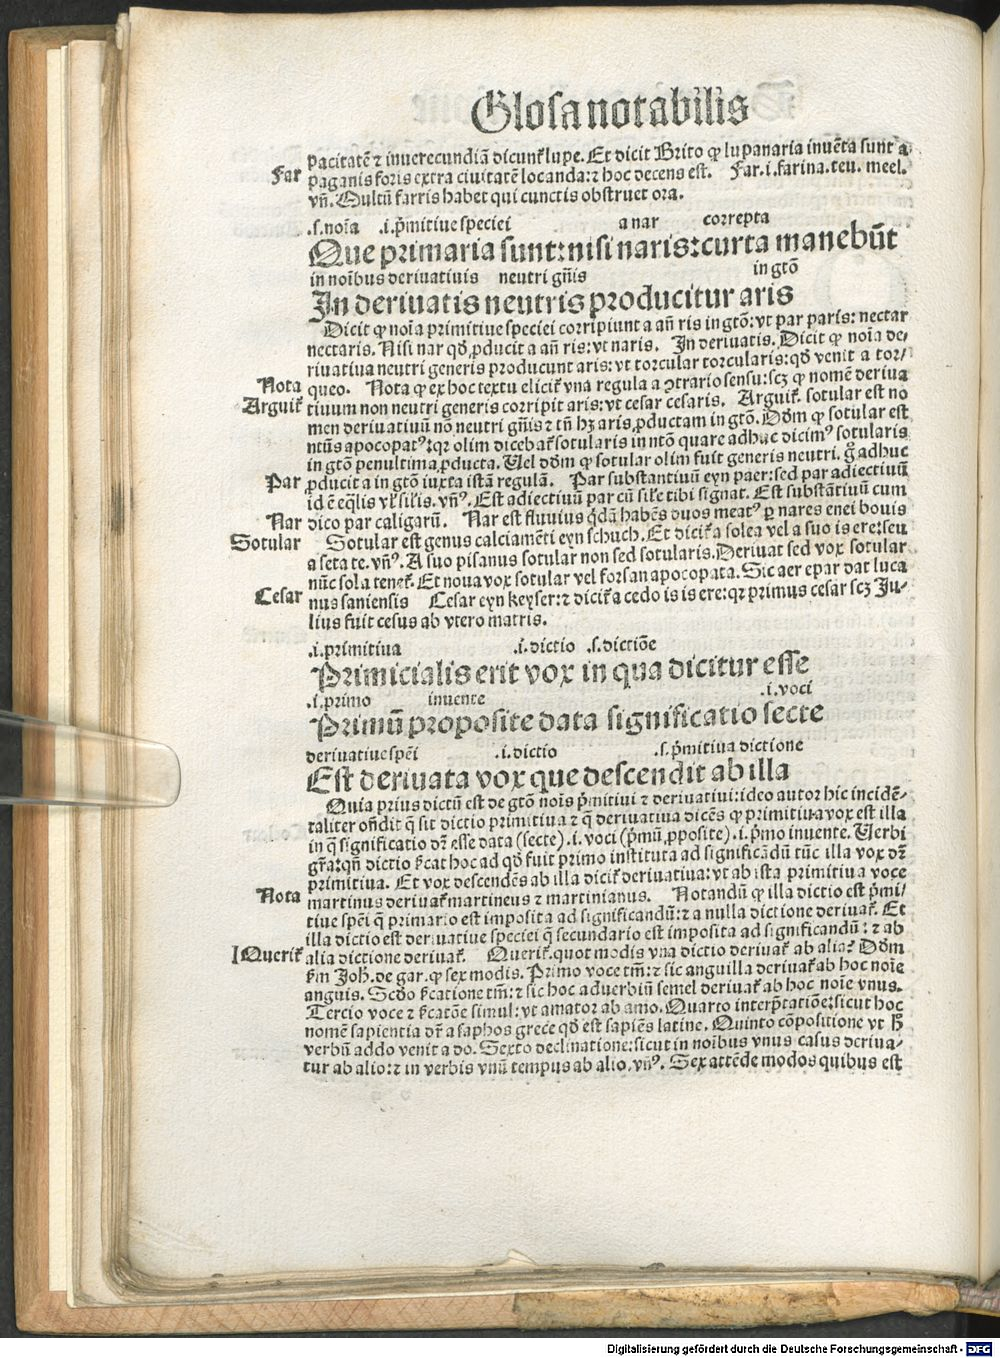 Glosa notabilis
pacitatē ⁊ inuerecundiā dicunt᷑ lupe. Et dicit Brito ꝙ lupanaria inuēta sunt a
Far paganis foris extra ciuitatē locanda: ⁊ hoc decens est. Far .i. farina. teu. meel.
vñ. Multū farris habet qui cunctis obstruet ora.
.s. noīa .i. p̄mitiue speciei a nar correpta
Que primaria sunt: nisi naris: curta manebūt
in noībus deriuatiuis neutri gn̄is in gtō
In deriuatis neutris producitur aris
Dicit ꝙ noīa primitiue speciei corripiunt a añ ris in gtō: vt par paris: nectar
nectaris. Nisi nar qđ ꝓducit a añ ris: vt naris. In deriuatis. Dicit ꝙ noīa de-
riuatiua neutri generis producunt aris: vt torcular torcularis: qđ venit a tor/
Nota queo. Nota ꝙ ex hoc textu elicit᷑ vna regula a ↄtrario sensu: scꝫ ꝙ nomē deriua
Arguit᷑ tiuum non neutri generis corripit aris: vt cesar cesaris. Arguit᷑. sotular est no
men deriuatiuū nō neutri gn̄is ⁊ tn̄ hꝫ aris ꝓductam in gtō. Dōm ꝙ sotular est
ntūs apocopatꝰ: qꝛ olim dicebat᷑ sotularis in ntō quare adhuc dicimꝰ sotularis
in gtō penultima ꝓducta. Uel dōm ꝙ sotular olim fuit generis neutri. g̊ adhuc
Par ꝓducit a in gtō iuxta istā regulā. Par substantiuū eyn paer: sed par adiectiuū
id ē eq̄lis vl̓ sil̓is. vñꝰ. Est adiectiuū par cū sil̓e tibi signat. Est substātiuū cum
Nar dico par caligarū. Nar est fluuius q̄dā habēs duos meatꝰ ꝑ nares enei bouis
Sotular Sotular est genus calciamēti eyn schuch. Et dicit᷑ a solea vel a suo is ere: seu
a seta te. vñꝰ. A suo pisanus sotular non sed sotularis. Deriuat sed vox sotular
nūc sola tenet᷑. Et noua vox sotular vel forsan apocopata. Sic aer epar dat luca
Cesar nus saniensis Cesar eyn keyser: ⁊ dicit᷑ a cedo is is ere: qꝛ primus cesar scꝫ Ju-
lius fuit cesus ab vtero matris.
.i. primitiua .i. dictio .s. dictiōe
Primicialis erit vox in qua dicitur esse
.i. primo inuente .i. voci
Primū proposite data significatio secte
deriuatiue spēi .i. dictio .s. p̄mitiua dictione
Est deriuata vox que descendit ab illa
Quia prius dictū est de gtō nois p̄mitiui ⁊ deriuatiui: ideo autor hic incidē-
taliter on̄dit q̄ sit dictio primitiua ⁊ q̄ deriuatiua dicēs ꝙ primitiua vox est illa
in q̄ significatio dr̄ esse data (secte) .i. voci (p̄mū ꝓposite) .i. p̄mo inuente. Uerbi
gr̄a: qn̄ dictio ſ̓cat hoc ad qđ fuit primo instituta ad significādū tūc illa vox dr̄
primitiua. Et vox descendēs ab illa dicit᷑ deriuatiua: vt ab ista primitiua voce
Nota martinus deriuat᷑ martineus ⁊ martinianus. Notandū ꝙ illa dictio est p̄mi/
tiue spēi q̄ primario est imposita ad significandū: ⁊ a nulla dictione deriuat᷑. Et
illa dictio est deriuatiue speciei q̄ secundario est imposita ad significandū: ⁊ ab
Querit᷑ alia dictione deriuat᷑. Querit᷑. quot modis vna dictio deriuat᷑ ab alia? Dōm
ſ̓m Joh̄. de gar. ꝙ sex modis. Primo voce tm̄: ⁊ sic anguilla deriuat᷑ ab hoc noīe
anguis. Scđo ſ̓catione tm̄: ⁊ sic hoc aduerbiū semel deriuat᷑ ab hoc noīe vnus.
Tercio voce ⁊ ſ̓catōne simul: vt amator ab amo. Quarto interp̄tatiōe: sicut hoc
nomē sapientia dr̄ a saphos grece qđ est sapiēs latine. Quinto cōpositione vt ħ
verbū addo venit a do. Sexto declinatione: sicut in noībus vnus casus deriua-
tur ab alio: ⁊ in verbis vnū tempus ab alio. vñꝰ. Sex attēde modos quibus est
Digitalisierung gefördert durch die Deutsche Forschungsgemeinschaft - DFG